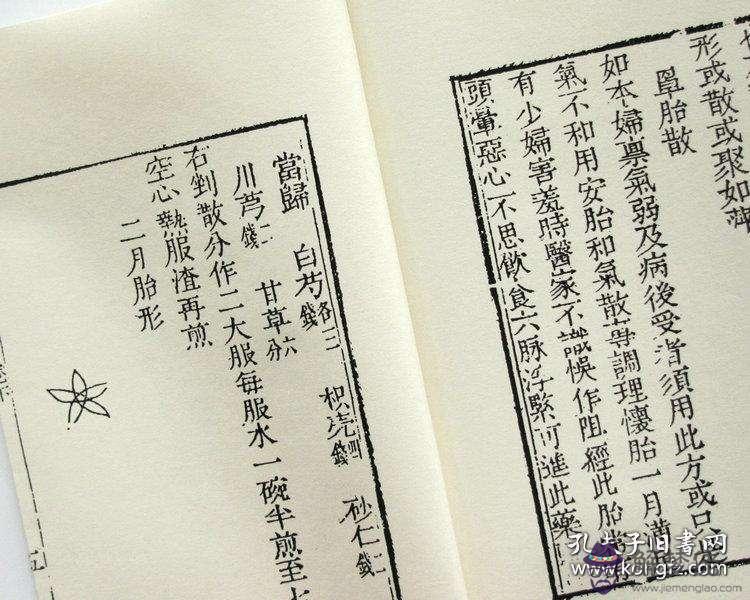 形或散或聚如
罩胎散
如本婦禀氣弱及病後受 須用此方或只
氣不和用安胎和氣散等調理懷胎一月滿
有少婦害羞時醫家不識悞作阻經此胎
頭暈惡心不思飲食六脉浮緊可進此藥
當歸 白芍各三錢 枳壳四錢 砂仁二錢
川芎二錢 甘草六分
右剉散分作二大服每服水一碗半煎至
空心熱服渣再煎
二月胎形
五
孔夫子旧書网
www.kongfz.com
www.jiemenglao.com